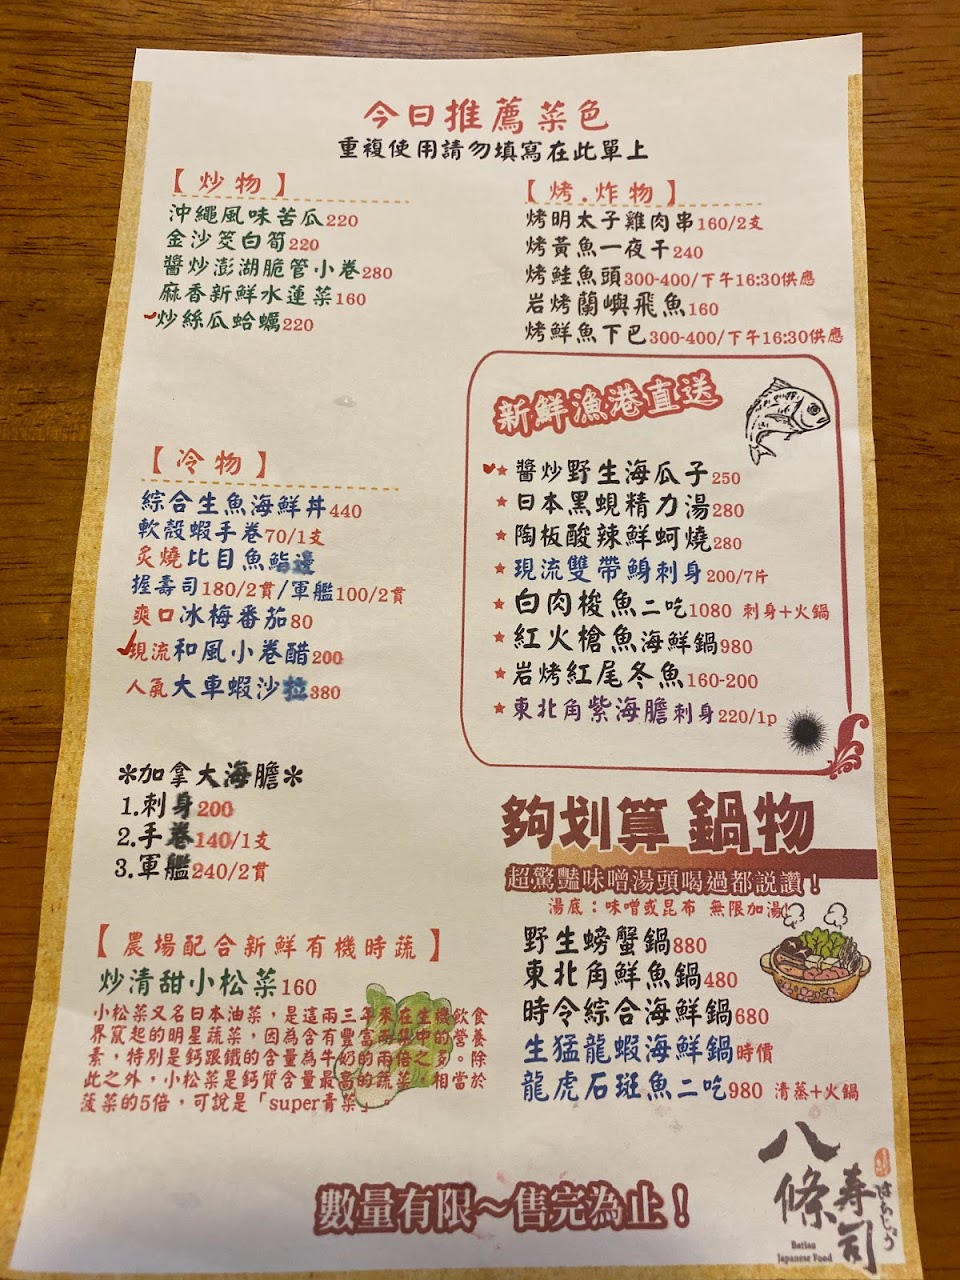 今日推薦菜色
重複使用請勿填寫在此單上
【炒物】
沖繩風味苦瓜220
金沙筊白筍220
醬炒澎湖脆管小卷280
麻香新鮮水蓮菜160
炒絲瓜蛤蠣220
【烤.炸物】
烤明太子雞肉串160/2支
烤黃魚一夜干240
烤鮭魚頭300-400/下午16:30供應
岩烤蘭嶼飛魚160
烤鮮魚下巴300-400/下午16:30供應
【冷物】
綜合生魚海鮮丼440
軟殼蝦手卷70/1支
炙燒比目魚鰭邊
握壽司180/2貫/軍艦100/2貫
爽口冰梅番茄80
現流和風小卷醋200
人氣大車蝦沙拉380
新鮮漁港直送
★醬炒野生海瓜子250
★日本黑蜆精力湯280
★陶板酸辣鮮蚵燒280
★現流雙帶鰺刺身200/7片
★白肉梭魚二吃1080 刺身+火鍋
★紅火槍魚海鮮鍋980
★岩烤紅尾冬魚160-200
★東北角紫海膽刺身220/1p
＊加拿大海膽＊
1.刺身200
2.手卷140/1支
3.軍艦240/2貫
【農場配合新鮮有機時蔬】
炒清甜小松菜160
小松菜又名日本油菜，是這兩三年來在生機飲食
界竄起的明星蔬菜，因為含有豐富而集中的營養
素，特別是鈣跟鐵的含量為牛奶的兩倍之多。除
此之外，小松菜是鈣質含量最高的蔬菜，相當於
菠菜的5倍，可說是「super青菜」。
夠划算 鍋物
超驚豔味噌湯頭喝過都說讚！
湯底：味噌或昆布 無限加湯！
野生螃蟹鍋880
東北角鮮魚鍋480
時令綜合海鮮鍋680
生猛龍蝦海鮮鍋時價
龍虎石斑魚二吃980 清蒸+火鍋
數量有限～售完為止！
八條壽司
はちじょう
Batiau
Japanese Food